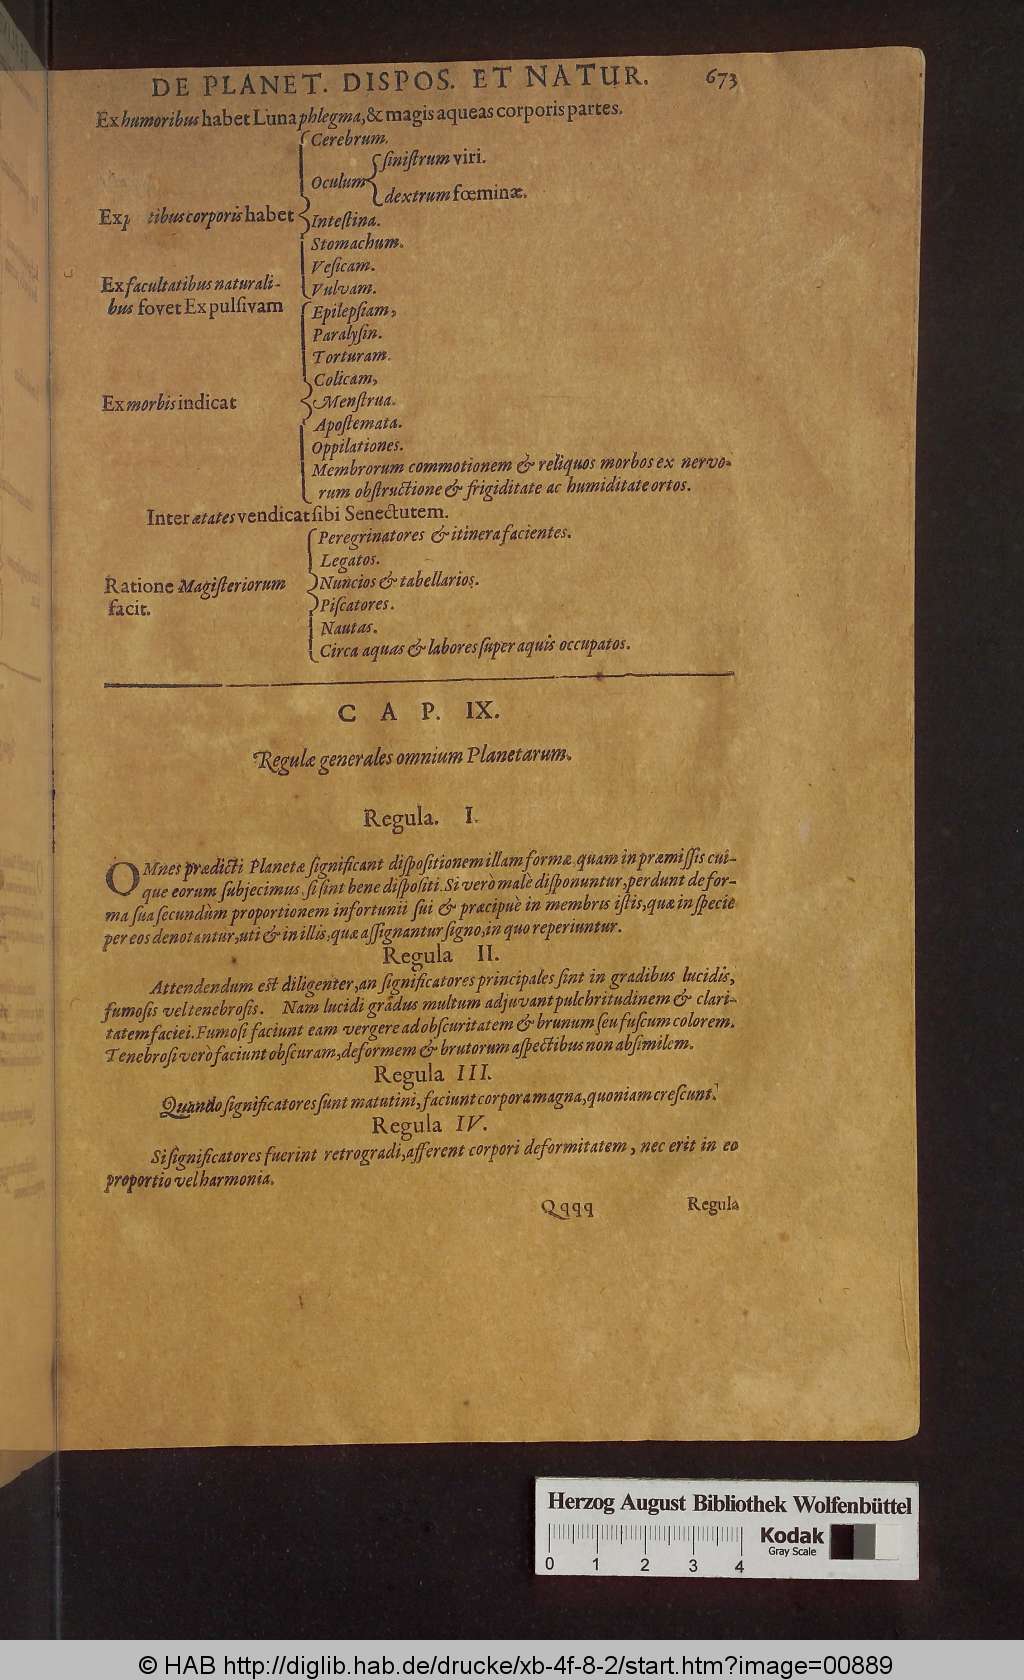 DE PLANET. DISPOS. ET NATUR. 673
Ex humoribus habet Luna phlegma, & magis aqueas corporis partes.
Cerebrum.
ſiniſtrum viri.
Oculum
dextrum fœminæ.
Ex p tibus corporis habet
Inteſtina.
Stomachum.
Veſicam.
Ex facultatibus naturali-
Vulvam.
bus fovet Expulſivam
Epilepſiam,
Paralyſin.
Torturam.
Colicam,
Ex morbis indicat
Menſtrua.
Apoſtemata.
Oppilationes.
Membrorum commotionem & reliquos morbos ex nervo-
rum obſtructione & frigiditate ac humiditate ortos.
Inter ætates vendicat ſibi Senectutem.
Peregrinatores & itinera facientes.
Legatos.
Ratione Magiſteriorum
Nuncios & tabellarios.
facit.
Piſcatores.
Nautas.
Circa aquas & labores ſuper aquis occupatos.
CAP. IX.
Regulæ generales omnium Planetarum.
Regula. I.
OMnes prædicti Planetæ ſignificant diſpoſitionem illam formæ, quam in præmiſſis cui-
que eorum ſubjecimus, ſi ſint bene diſpoſiti. Si verò malè diſponuntur, perdunt de for-
ma ſua ſecundùm proportionem infortunii ſui & præcipuè in membris iſtis, quæ in ſpecie
per eos denotantur, uti & in illis, quæ aſſignantur ſigno, in quo reperiuntur.
Regula II.
Attendendum eſt diligenter, an ſignificatores principales ſint in gradibus lucidis,
fumoſis vel tenebroſis. Nam lucidi gradus multum adjuvant pulchritudinem & clari-
tatem faciei. Fumoſi faciunt eam vergere ad obſcuritatem & brunum ſeu fuſcum colorem.
Tenebroſi verò faciunt obſcuram, deformem & brutorum aſpectibus non abſimilem.
Regula III.
Quando ſignificatores ſunt matutini, faciunt corpora magna, quoniam creſcunt.
Regula IV.
Si ſignificatores fuerint retrogradi, afferent corpori deformitatem, nec erit in eo
proportio vel harmonia.
Qqqq Regula
Herzog August Bibliothek Wolfenbüttel
Kodak
Gray Scale
0 1 2 3 4
© HAB http://diglib.hab.de/drucke/xb-4f-8-2/start.htm?image=00889